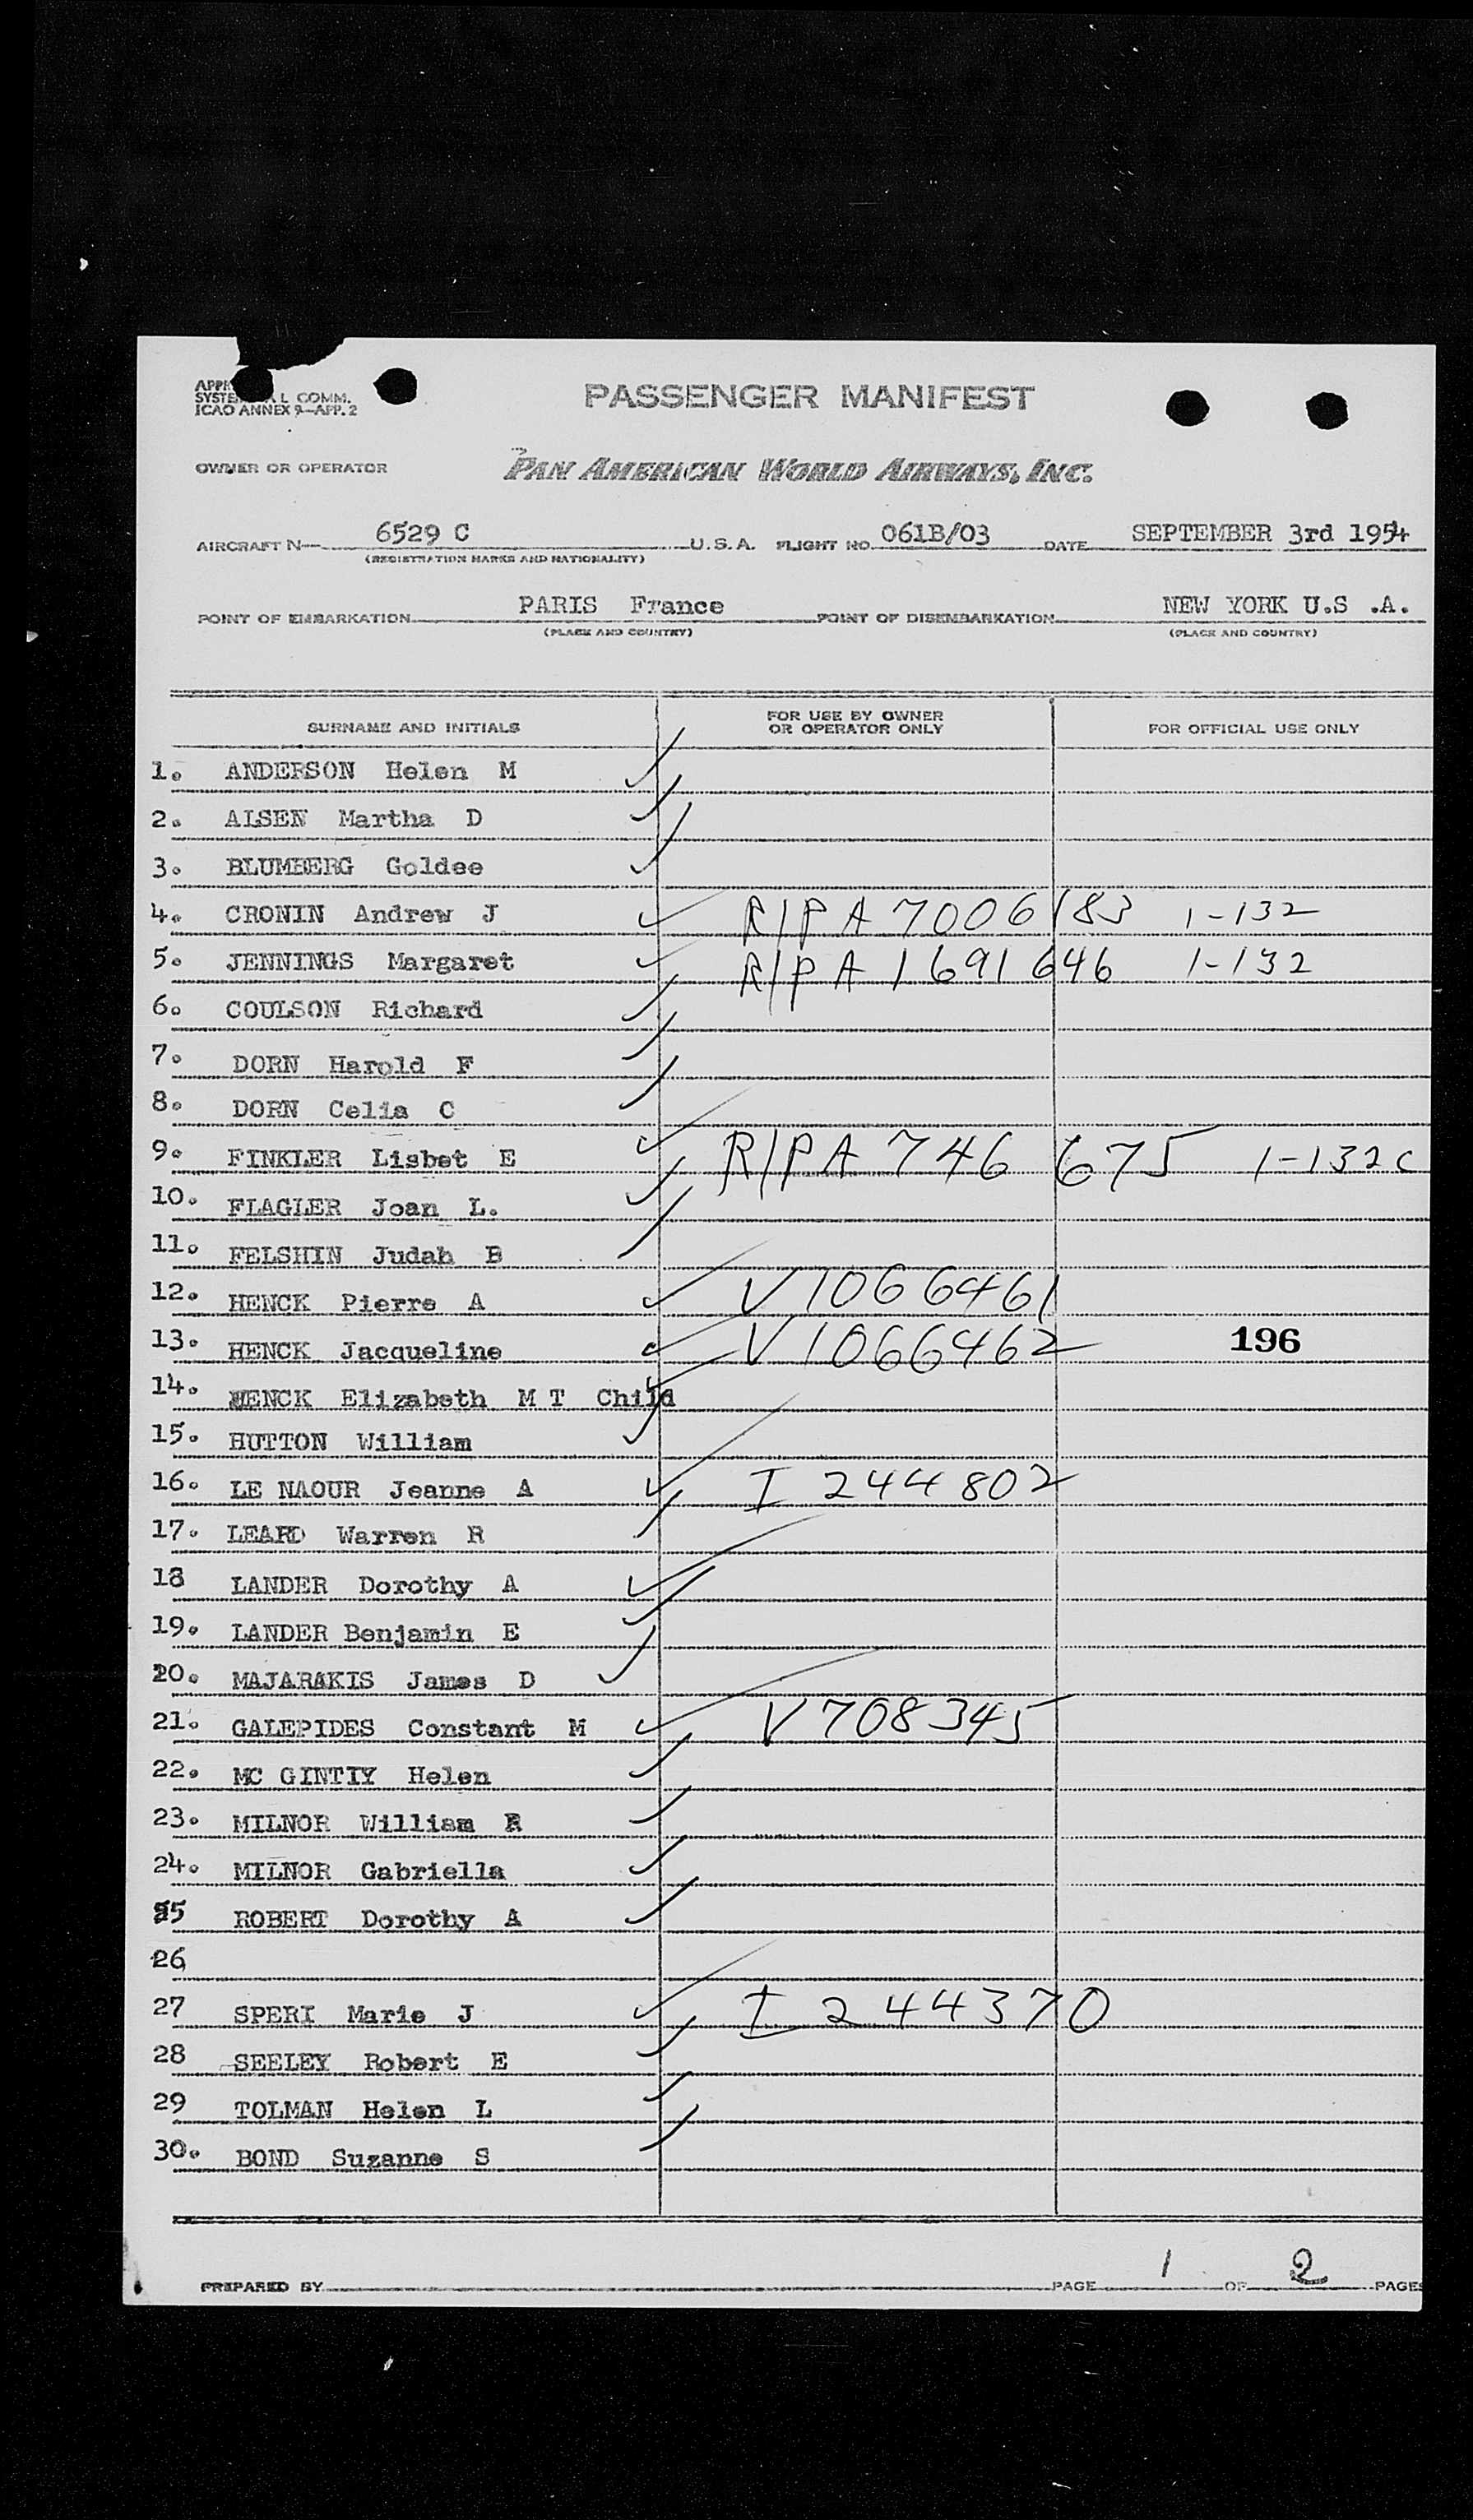 PASSENGER MANIFEST
L COMM.
ICAO ANNEX 9—APP. 2
OWNER OR OPERATOR PAN AMERICAN WORLD AIRWAYS, INC.
AIRCRAFT N— 6529 C U.S.A. FLIGHT NO. 061B/03 DATE SEPTEMBER 3rd 1954
(REGISTRATION MARKS AND NATIONALITY)
POINT OF EMBARKATION PARIS France POINT OF DISEMBARKATION NEW YORK U.S .A.
(PLACE AND COUNTRY) (PLACE AND COUNTRY)
SURNAME AND INITIALS FOR USE BY OWNER OR OPERATOR ONLY FOR OFFICIAL USE ONLY
1. ANDERSON Helen M
2. AISEN Martha D
3. BLUMBERG Goldee
4. CRONIN Andrew J R/P A 7006183 1-132
5. JENNINGS Margaret R/P A 1691646 1-132
6. COULSON Richard
7. DORN Harold F
8. DORN Celia C
9. FINKLER Lisbet E R/P A 746 675 1-132c
10. FLAGLER Joan L.
11. FELSHIN Judah B
12. HENCK Pierre A V 1066461
13. HENCK Jacqueline V 1066462 196
14. HENCK Elizabeth M T Child
15. HUTTON William
16. LE NAOUR Jeanne A I 244802
17. LEARD Warren R
18 LANDER Dorothy A
19. LANDER Benjamin E
20. MAJARAKIS James D
21. GALEPIDES Constant M V 708345
22. MC GINTIY Helen
23. MILNOR William R
24. MILNOR Gabriella
25 ROBERT Dorothy A
26
27 SPERI Marie J I 244370
28 SEELEY Robert E
29 TOLMAN Helen L
30. BOND Suzanne S
PREPARED BY PAGE 1 OF 2 PAGES